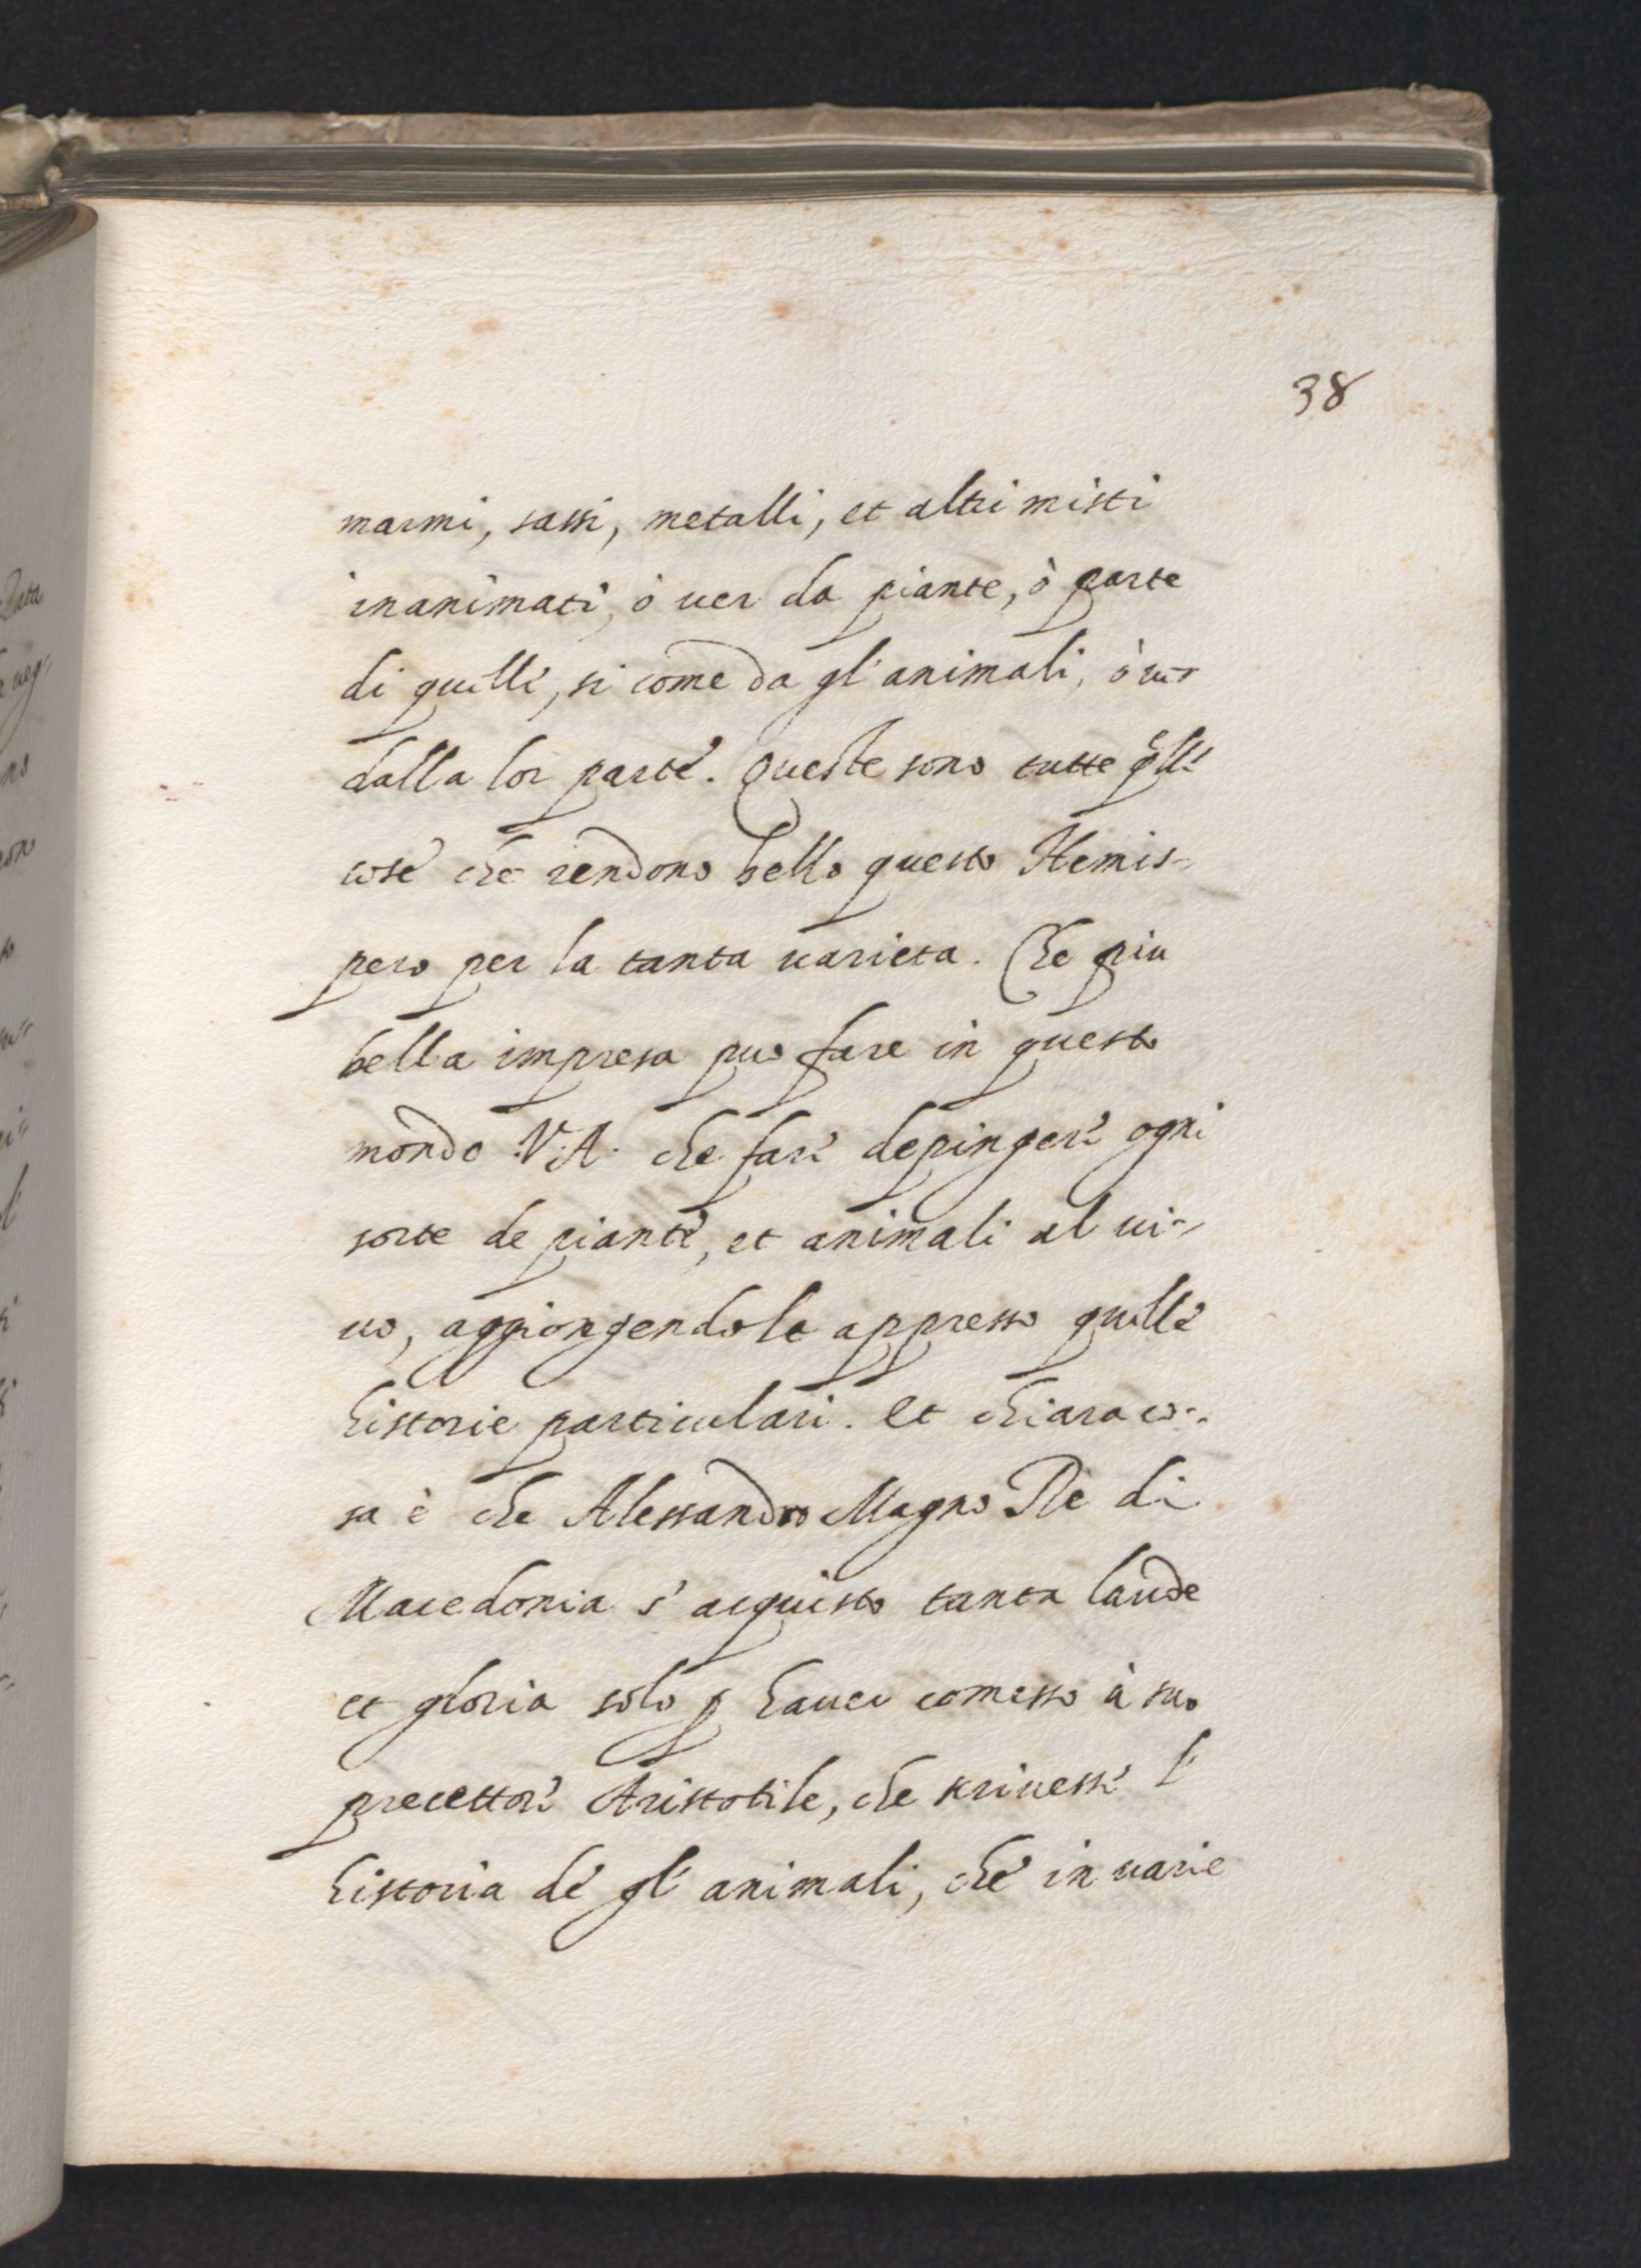 38
marmi, sassi, metalli, et altri misti
inanimati, ò uer da piante, ò parte
di quelle, si come da gl' animali, ò uer
dalla lor parte. Queste sono tutte q̃lle
cose che rendono bello questo Hemis-
pero per la tanta uarieta. Che piu
bella impresa puo fare in questo
mondo V.A. che fare depingere ogni
sorte de piante, et animali al ui-
uo, aggiongendole appresso quelle
historie particulari. Et chiara co-
sa è che Alessandro Magno Re di
Macedonia s' acquisto tanta laude
et gloria solo ꝑ hauer comesso à suo
precettore Aristotile, che scriuesse l'
historia de gl' animali, che in uarie